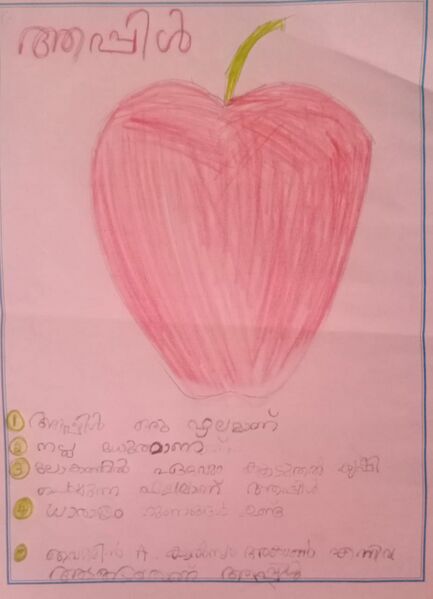 ആപ്പിൾ
1 ആപ്പിൾ ഒരു ഫലമാണ്
2 നല്ല മധുരമാണ്
3 ലോകത്തിൽ ഏറ്റവും കൂടുതൽ കൃഷി
ചെയ്യുന്ന ഫലമാണ് ആപ്പിൾ
4 ധാരാളം ഗുണങ്ങൾ ഉണ്ട്
5 വൈറ്റമിൻ A കാൽസ്യം എന്നിവ
അടങ്ങിയതാണ് ആപ്പിൾ